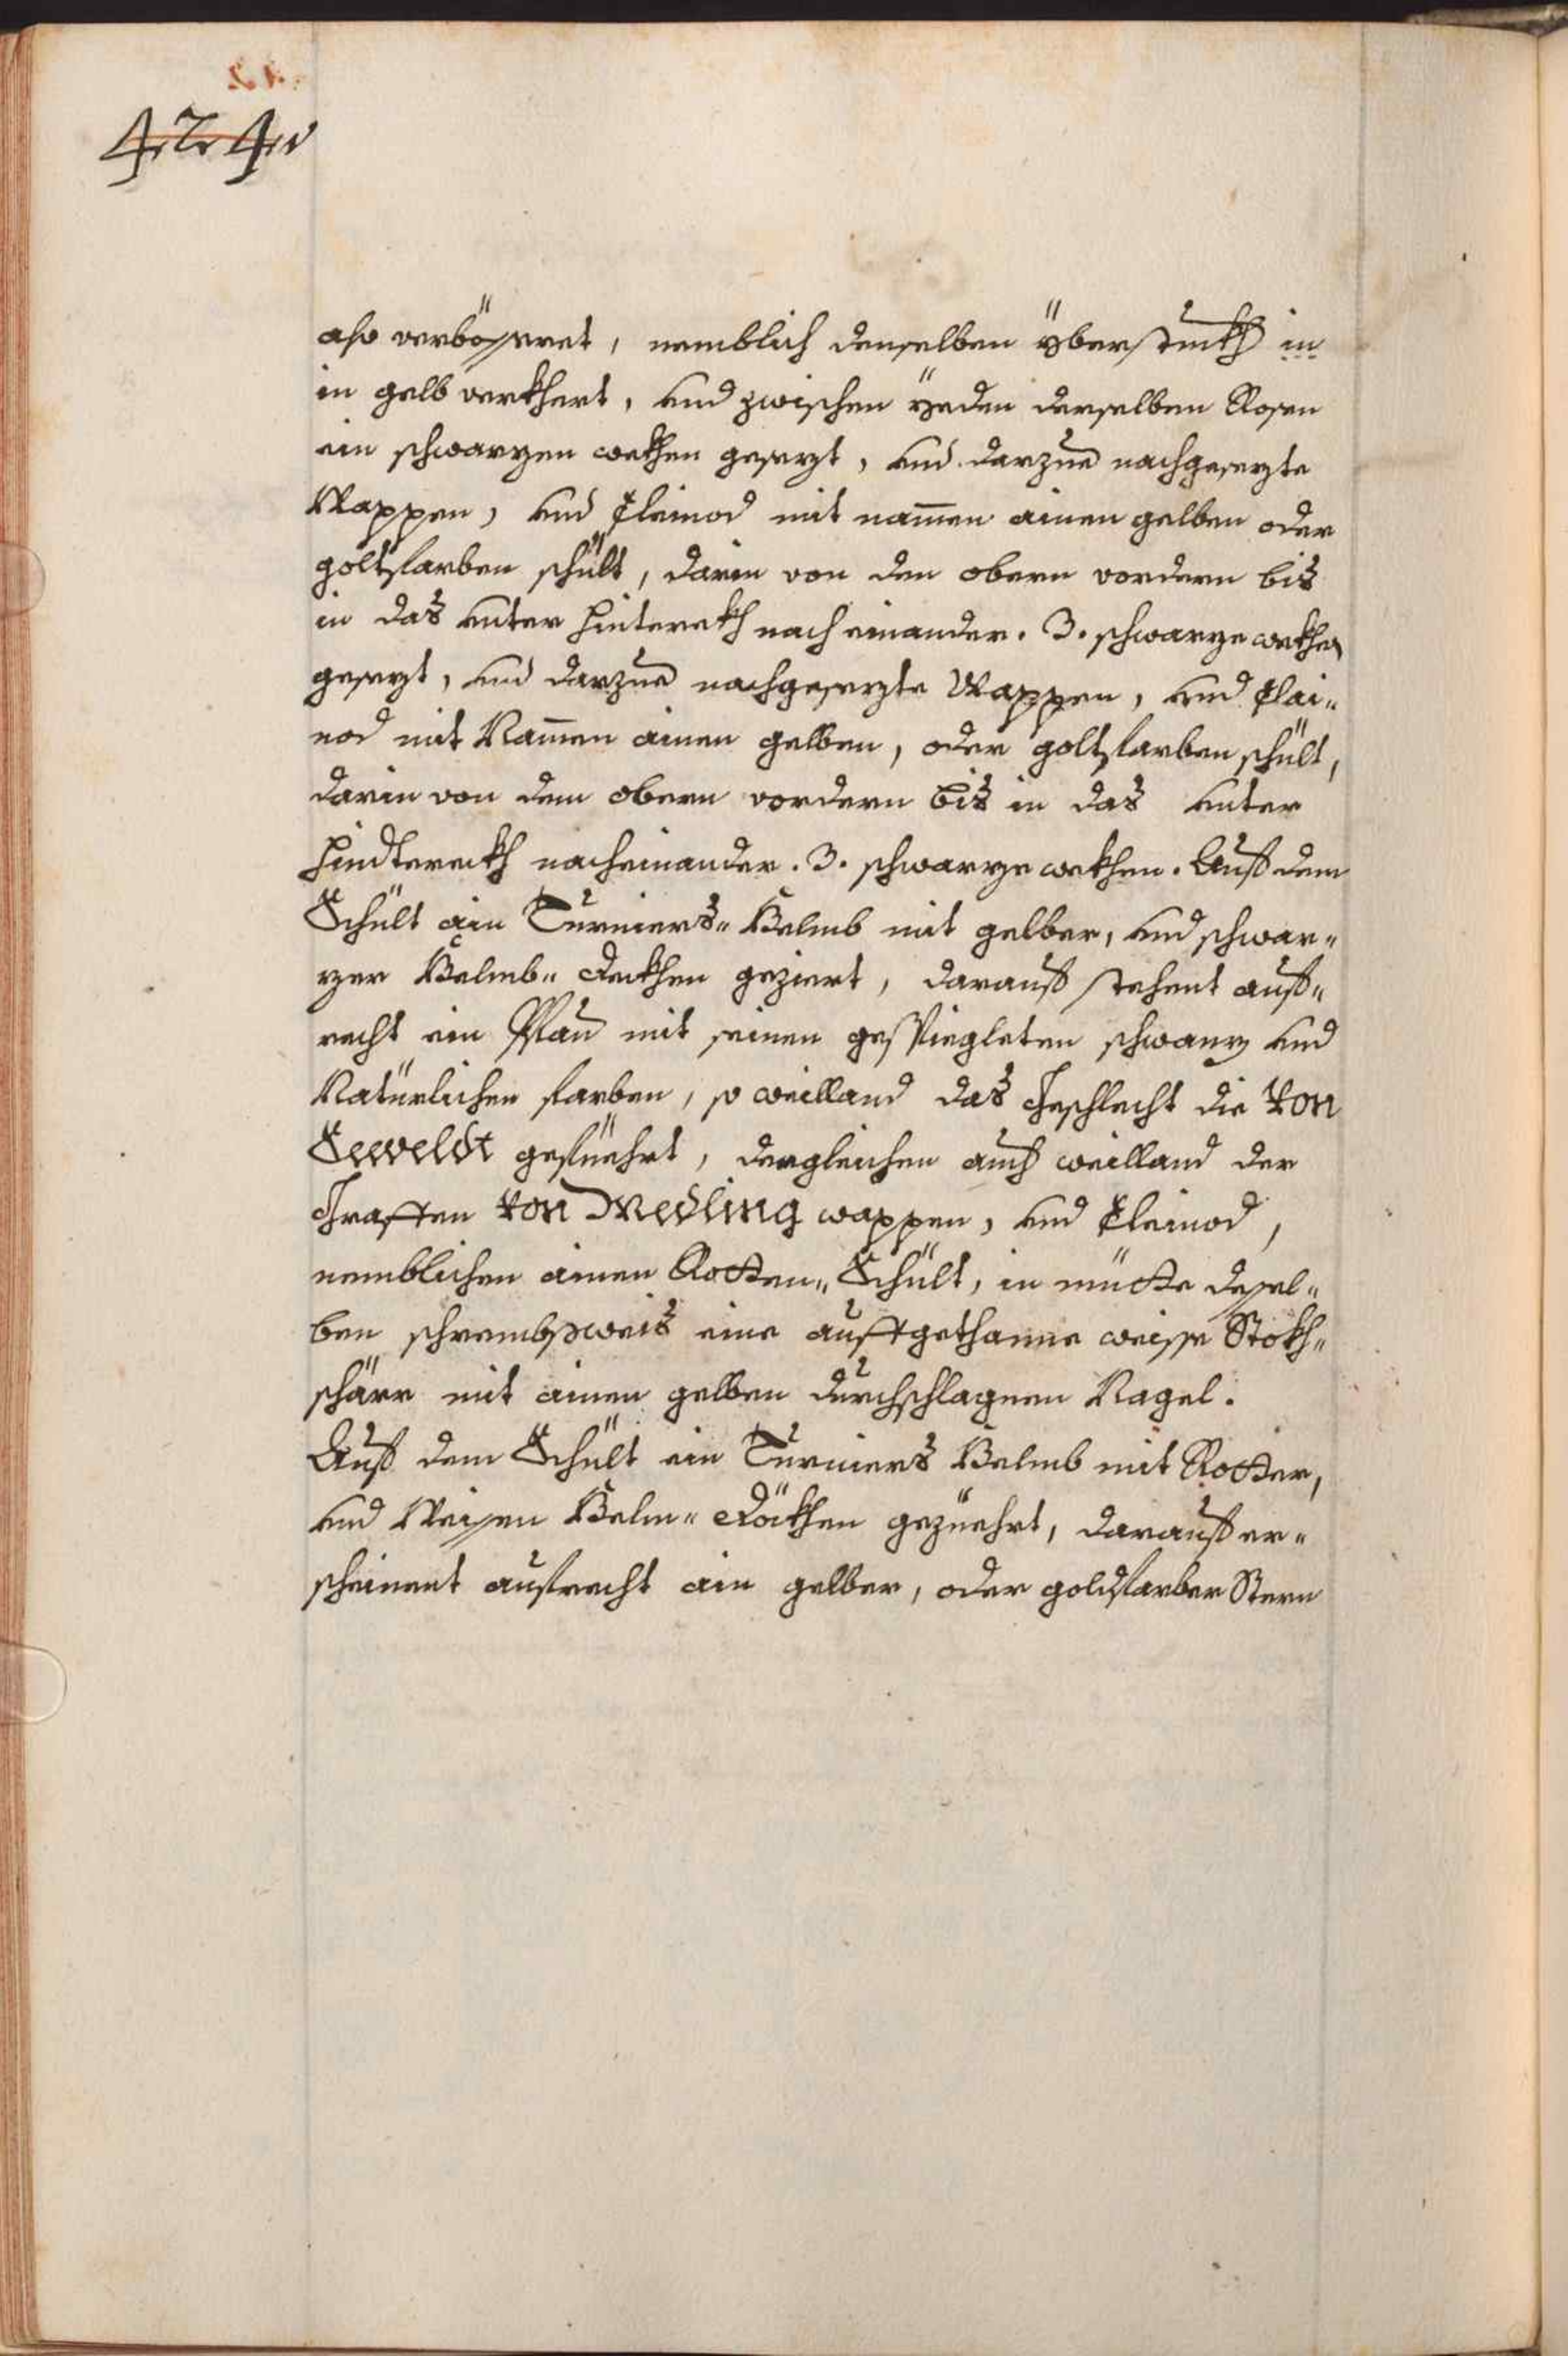 also verbösseret, nemblich denselben überstukh in
in gelb verkhert, und zwischen yeden derselben Rosen
ein schwarzen wekhen gesezt, und darzue nachgesezte
Wappen, und Cleinod mit nam̄en ainen gelben oder
goltfarben schült, darin von den obern vordern bis
in das unter hinterekh nach einander. 3. schwarze wekhen
gesezt, und darzue nachgesezte Wappen, und Clai„
nod mit Nam̄en ainen gelben, oder goltfarben schült,
darin von dem obern vordern bis in das unter
hindterekh nacheinander. 3. schwarze wekhen. Auf dem
Schült ain Turniers„ Helmb mit gelber, und schwar„
zer Helmb„ dekhen geziert, darauf stehent auf„
recht ein Pfau mit seinen gespiegleten schwanz und
Natürlichen farben, so weilland das Geschlecht die von
Seeveldt gefüehrt, dergleichen auch weilland der
Graffen von Medling wappen, und Cleinod,
nemblichen ainen Rotten„ Schült, in mütte desel„
ben schrembsweis eine auftgethanne weisse Stokh„
schärr mit ainen gelben durchschlagnen Nagel.
Auf dem Schült ein Turniers Helmb mit Rotter,
und Weisen Helm„ Dökhen gezüehrt, darauf er„
scheinent aufrecht ain gelber, oder goldfarber Stern